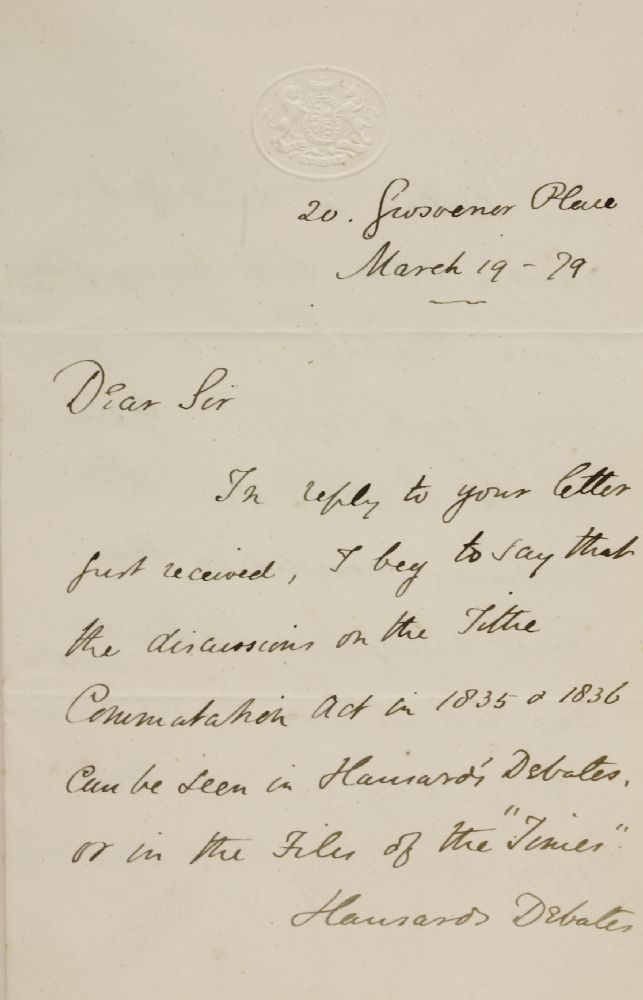 20. Grosvenor Place
March 19 - 79
Dear Sir
In reply to your letter
just received, I beg to say that
the discussions on the Tithe
Commutation Act in 1835 & 1836
can be seen in Hansard's Debates,
or in the Files of the "Times".
Hansards Debates